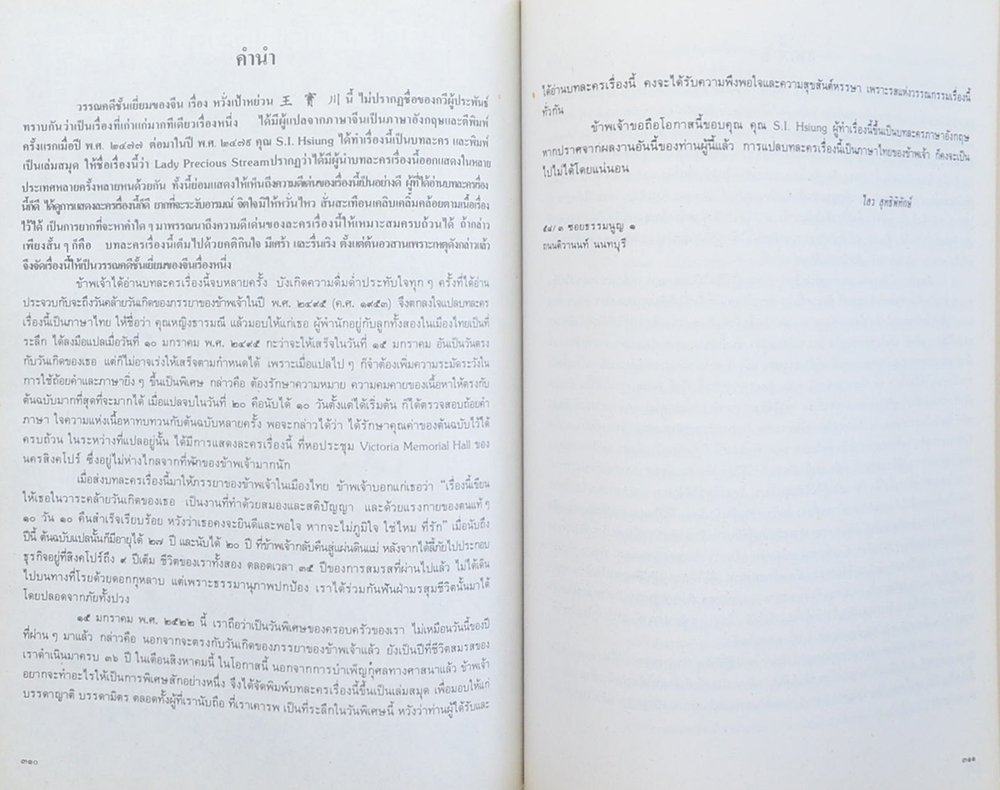 คำนำ
วรรณคดีชั้นเยี่ยมของจีน เรื่อง หวั่งเป้าหย่วน 王寶川 นี้ ไม่ปรากฏชื่อของกวีผู้ประพันธ์
ทราบกันว่าเป็นเรื่องที่เก่าแก่มากทีเดียวเรื่องหนึ่ง ได้มีผู้แปลจากภาษาจีนเป็นภาษาอังกฤษและตีพิมพ์
ครั้งแรกเมื่อปี พ.ศ. ๒๔๗๗ ต่อมาในปี พ.ศ. ๒๔๗๙ คุณ S.I. Hsiung ได้ทำเรื่องนี้เป็นบทละคร และพิมพ์
เป็นเล่มสมุด ให้ชื่อเรื่องนี้ว่า Lady Precious Stream ปรากฏว่าได้มีผู้นำบทละครเรื่องนี้ออกแสดงในหลาย
ประเทศหลายครั้งหลายหนด้วยกัน ทั้งนี้ย่อมแสดงให้เห็นถึงความดีเด่นของเรื่องนี้เป็นอย่างดี ผู้ที่ได้อ่านบทละครเรื่อง
นี้ก็ดี ได้ดูการแสดงละครเรื่องนี้ก็ดี ยากที่จะระงับอารมณ์ จิตใจมิให้หวั่นไหว สั่นสะเทือนเคลิบเคลิ้มคล้อยตามเนื้อเรื่อง
ไว้ได้ เป็นการยากที่จะหาคำใด ๆ มาพรรณนาถึงความดีเด่นของละครเรื่องนี้ให้เหมาะสมครบถ้วนได้ ถ้ากล่าว
เพียงสั้น ๆ ก็คือ บทละครเรื่องนี้เต็มไปด้วยคติกินใจ มีเศร้า และรื่นเริง ตั้งแต่ต้นอวสานเพราะเหตุดังกล่าวแล้ว
จึงจัดเรื่องนี้ให้เป็นวรรณคดีชั้นเยี่ยมของจีนเรื่องหนึ่ง
ข้าพเจ้าได้อ่านบทละครเรื่องนี้จบหลายครั้ง บังเกิดความดื่มด่ำประทับใจทุก ๆ ครั้งที่ได้อ่าน
ประจวบกับจะถึงวันคล้ายวันเกิดของภรรยาของข้าพเจ้าในปี พ.ศ. ๒๔๙๕ (ค.ศ. ๑๙๕๓) จึงตกลงใจแปลบทละคร
เรื่องนี้เป็นภาษาไทย ให้ชื่อว่า คุณหญิงธารมณี แล้วมอบให้แก่เธอ ผู้พำนักอยู่กับลูกทั้งสองในเมืองไทยเป็นที่
ระลึก ได้ลงมือแปลเมื่อวันที่ ๑๐ มกราคม พ.ศ. ๒๔๙๕ กะว่าจะให้เสร็จในวันที่ ๑๕ มกราคม อันเป็นวันตรง
กับวันเกิดของเธอ แต่ก็ไม่อาจเร่งให้เสร็จตามกำหนดได้ เพราะเมื่อแปลไป ๆ ก็จำต้องเพิ่มความระมัดระวังใน
การใช้ถ้อยคำและภาษายิ่ง ๆ ขึ้นเป็นพิเศษ กล่าวคือ ต้องรักษาความหมาย ความคมคายของเนื้อหาให้ตรงกับ
ต้นฉบับมากที่สุดที่จะมากได้ เมื่อแปลจบในวันที่ ๒๐ คือนับได้ ๑๐ วันตั้งแต่ได้เริ่มต้น ก็ได้ตรวจสอบถ้อยคำ
ภาษา ใจความแห่งเนื้อหาทบทวนกับต้นฉบับหลายครั้ง พอจะกล่าวได้ว่า ได้รักษาคุณค่าของต้นฉบับไว้ได้
ครบถ้วน ในระหว่างที่แปลอยู่นั้น ได้มีการแสดงละครเรื่องนี้ ที่หอประชุม Victoria Memorial Hall ของ
นครสิงคโปร์ ซึ่งอยู่ไม่ห่างไกลจากที่พักของข้าพเจ้ามากนัก
เมื่อส่งบทละครเรื่องนี้มาให้ภรรยาของข้าพเจ้าในเมืองไทย ข้าพเจ้าบอกแก่เธอว่า "เรื่องนี้เขียน
ให้เธอในวาระคล้ายวันเกิดของเธอ เป็นงานที่ทำด้วยสมองและสติปัญญา และด้วยแรงกายของตนแท้ ๆ
๑๐ วัน ๑๐ คืนสำเร็จเรียบร้อย หวังว่าเธอคงจะยินดีและพอใจ หากจะไม่ภูมิใจ ใช่ไหม ที่รัก" เมื่อนับถึง
ปีนี้ ต้นฉบับแปลนั้นก็มีอายุได้ ๒๗ ปี และนับได้ ๒๐ ปี ที่ข้าพเจ้ากลับคืนสู่แผ่นดินแม่ หลังจากได้ลี้ภัยไปประกอบ
ธุรกิจอยู่ที่สิงคโปร์ถึง ๙ ปีเต็ม ชีวิตของเราทั้งสอง ตลอดเวลา ๓๕ ปีของการสมรสที่ผ่านไปแล้ว ไม่ได้เดิน
ไปบนทางที่โรยด้วยดอกกุหลาบ แต่เพราะธรรมานุภาพปกป้อง เราได้ร่วมกันฟันฝ่ามรสุมชีวิตนั้นมาได้
โดยปลอดจากภัยทั้งปวง
๑๕ มกราคม พ.ศ. ๒๕๒๒ นี้ เราถือว่าเป็นวันพิเศษของครอบครัวของเรา ไม่เหมือนวันนี้ของปี
ที่ผ่าน ๆ มาแล้ว กล่าวคือ นอกจากจะตรงกับวันเกิดของภรรยาของข้าพเจ้าแล้ว ยังเป็นปีที่ชีวิตสมรสของ
เราดำเนินมาครบ ๓๖ ปี ในเดือนสิงหาคมนี้ ในโอกาสนี้ นอกจากการบำเพ็ญกุศลทางศาสนาแล้ว ข้าพเจ้า
อยากจะทำอะไรให้เป็นการพิเศษสักอย่างหนึ่ง จึงได้จัดพิมพ์บทละครเรื่องนี้ขึ้นเป็นเล่มสมุด เพื่อมอบให้แก่
บรรดาญาติ บรรดามิตร ตลอดทั้งผู้ที่เรานับถือ ที่เราเคารพ เป็นที่ระลึกในวันพิเศษนี้ หวังว่าท่านผู้ได้รับและ
๓๑๐
ได้อ่านบทละครเรื่องนี้ คงจะได้รับความพึงพอใจและความสุขสันต์หรรษา เพราะรสแห่งวรรณกรรมเรื่องนี้
ทั่วกัน
ข้าพเจ้าขอถือโอกาสนี้ขอบคุณ คุณ S.I. Hsiung ผู้ทำเรื่องนี้ขึ้นเป็นบทละครภาษาอังกฤษ
หากปราศจากผลงานอันนี้ของท่านผู้นี้แล้ว การแปลบทละครเรื่องนี้เป็นภาษาไทยของข้าพเจ้า ก็คงจะเป็น
ไปไม่ได้โดยแน่นอน
ไสว สุทธิพิทักษ์
๕๔/๓ ซอยธรรมนูญ ๑
ถนนติวานนท์ นนทบุรี
๓๑๑